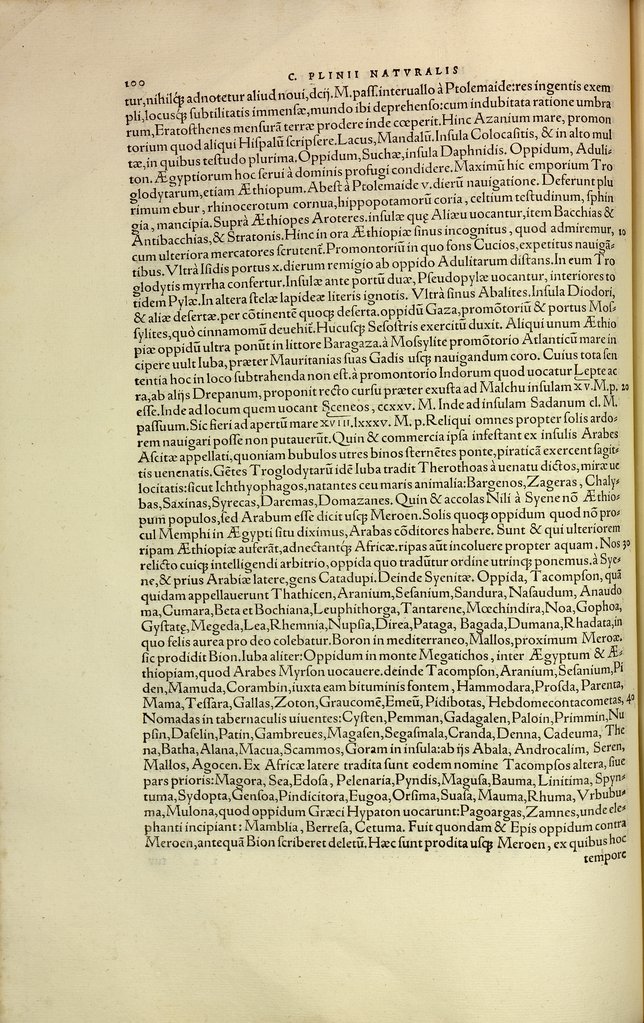 100
C. PLINII NATVRALIS
tur,nihilq́; adnotetur aliud noui, dcij. M.paſſ.interuallo à Ptolemaide:res ingentis exem
pli,locusq́; ſubtilitatis immenſæ, mundo ibi deprehenſo:cum indubitata ratione umbra
rum, Eratoſthenes menſurã terræ prodere inde cœperit. Hinc Azanium mare, promon
torium quod aliqui Hiſpalũ ſcripſere. Lacus, Mandalũ. Inſula Colocaſitis, & in alto mul
tæ, in quibus teſtudo plurima. Oppidum, Suchæ, inſula Daphnidis. Oppidum, Aduli-
ton. Ægyptiorum hoc ſerui à dominis profugi condidere. Maximũ hic emporium Tro
glodytarum, etiam Æthiopum. Abeſt à Ptolemaide v. dierũ nauigatione. Deferunt plu
rimum ebur, rhinocerotum cornua, hippopotamorũ coria, celtium teſtudinum, ſphin
gia, mancipia. Suprà Æthiopes Aroteres. inſulæ quę Aliæu uocantur, item Bacchias &
Antibacchias, & Stratonis. Hinc in ora Æthiopiæ ſinus incognitus, quod admiremur, 10
cum ulteriora mercatores ſcrutent̃. Promontoriũ in quo fons Cucios, expetitus nauigã-
tibus. Vltrà Iſidis portus x. dierum remigio ab oppido Adulitarum diſtans. In eum Tro
glodytis myrrha confertur. Inſulæ ante portũ duæ, Pſeudopylæ uocantur, interiores to
tidem Pylæ. In altera ſtelæ lapideæ literis ignotis. Vltrà ſinus Abalites. Inſula Diodori,
& aliæ deſertæ. per cõtinentẽ quoq; deſerta. oppidũ Gaza, promõtoriũ & portus Moſ-
ſylites, quò cinnamomũ deuehit̃. Hucuſq; Seſoſtris exercitũ duxit. Aliqui unum Æthio
piæ oppidũ ultra ponũt in littore Baragaza. à Moſſylite promõtorio Atlanticũ mare in
cipere uult Iuba, præter Mauritanias ſuas Gadis uſq; nauigandum coro. Cuius tota ſen
tentia hoc in loco ſubtrahenda non eſt. à promontorio Indorum quod uocatur Lepte ac
ra, ab alijs Drepanum, proponit recto curſu præter exuſta ad Malchu inſulam xv. M.p. 20
eſſe. Inde ad locum quem uocant Sceneos, ccxxv. M. Inde ad inſulam Sadanum cl. M.
paſſuum. Sic fieri ad apertũ mare xviii. lxxxv. M. p. Reliqui omnes propter ſolis ardo-
rem nauigari poſſe non putauerũt. Quin & commercia ipſa infeſtant ex inſulis Arabes
Aſcitæ appellati, quoniam bubulos utres binos ſternẽtes ponte, piraticã exercent ſagit-
tis uenenatis. Gẽtes Troglodytarũ idẽ Iuba tradit Therothoas à uenatu dictos, miræ ue
locitatis: ſicut Ichthyophagos, natantes ceu maris animalia: Bargenos, Zageras, Chaly-
bas, Saxinas, Syrecas, Daremas, Domazanes. Quin & accolas Nili à Syene nõ Æthio-
pum populos, ſed Arabum eſſe dicit uſq; Meroen. Solis quoq; oppidum quod nõ pro-
cul Memphi in Ægypti ſitu diximus, Arabas cõditores habere. Sunt & qui ulteriorem
ripam Æthiopiæ auferãt, adnectantq́; Africæ. ripas aũt incoluere propter aquam. Nos 30
relicto cuiq; intelligendi arbitrio, oppida quo tradũtur ordine utrinq; ponemus. à Sye-
ne, & prius Arabiæ latere, gens Catadupi. Deinde Syenitæ. Oppida, Tacompſon, quã
quidam appellauerunt Thathicen, Aranium, Seſanium, Sandura, Naſaudum, Anaudo
ma, Cumara, Beta et Bochiana, Leuphithorga, Tantarene, Mœchindira, Noa, Gophoa,
Gyſtatę, Megeda, Lea, Rhemnia, Nupſia, Direa, Pataga, Bagada, Dumana, Rhadata, in
quo felis aurea pro deo colebatur. Boron in mediterraneo, Mallos, proximum Meroæ.
ſic prodidit Bion. Iuba aliter: Oppidum in monte Megatichos, inter Ægyptum & Æ-
thiopiam, quod Arabes Myrſon uocauere. deinde Tacompſon, Aranium, Seſanium, Pi
den, Mamuda, Corambin, iuxta eam bituminis fontem, Hammodara, Proſda, Parenta,
Mama, Teſſara, Gallas, Zoton, Graucomẽ, Emeũ, Pidibotas, Hebdomecontacometas, 40
Nomadas in tabernaculis uiuentes: Cyſten, Pemman, Gadagalen, Paloin, Primmin, Nu
pſin, Daſelin, Patin, Gambreues, Magaſen, Segaſmala, Cranda, Denna, Cadeuma, The
na, Batha, Alana, Macua, Scammos, Goram in inſula: ab ijs Abala, Androcalim, Seren,
Mallos, Agocen. Ex Africæ latere tradita ſunt eodem nomine Tacompſos altera, ſiue
pars prioris: Magora, Sea, Edoſa, Pelenaria, Pyndis, Maguſa, Bauma, Linitima, Spyn-
tuma, Sydopta, Genſoa, Pindicitora, Eugoa, Orſima, Suaſa, Mauma, Rhuma, Vrbubu-
ma, Mulona, quod oppidum Græci Hypaton uocarunt: Pagoargas, Zamnes, unde ele-
phanti incipiant: Mamblia, Berreſa, Cetuma. Fuit quondam & Epis oppidum contra
Meroen, antequã Bion ſcriberet deletũ. Hæc ſunt prodita uſq; Meroen, ex quibus hoc
tempore